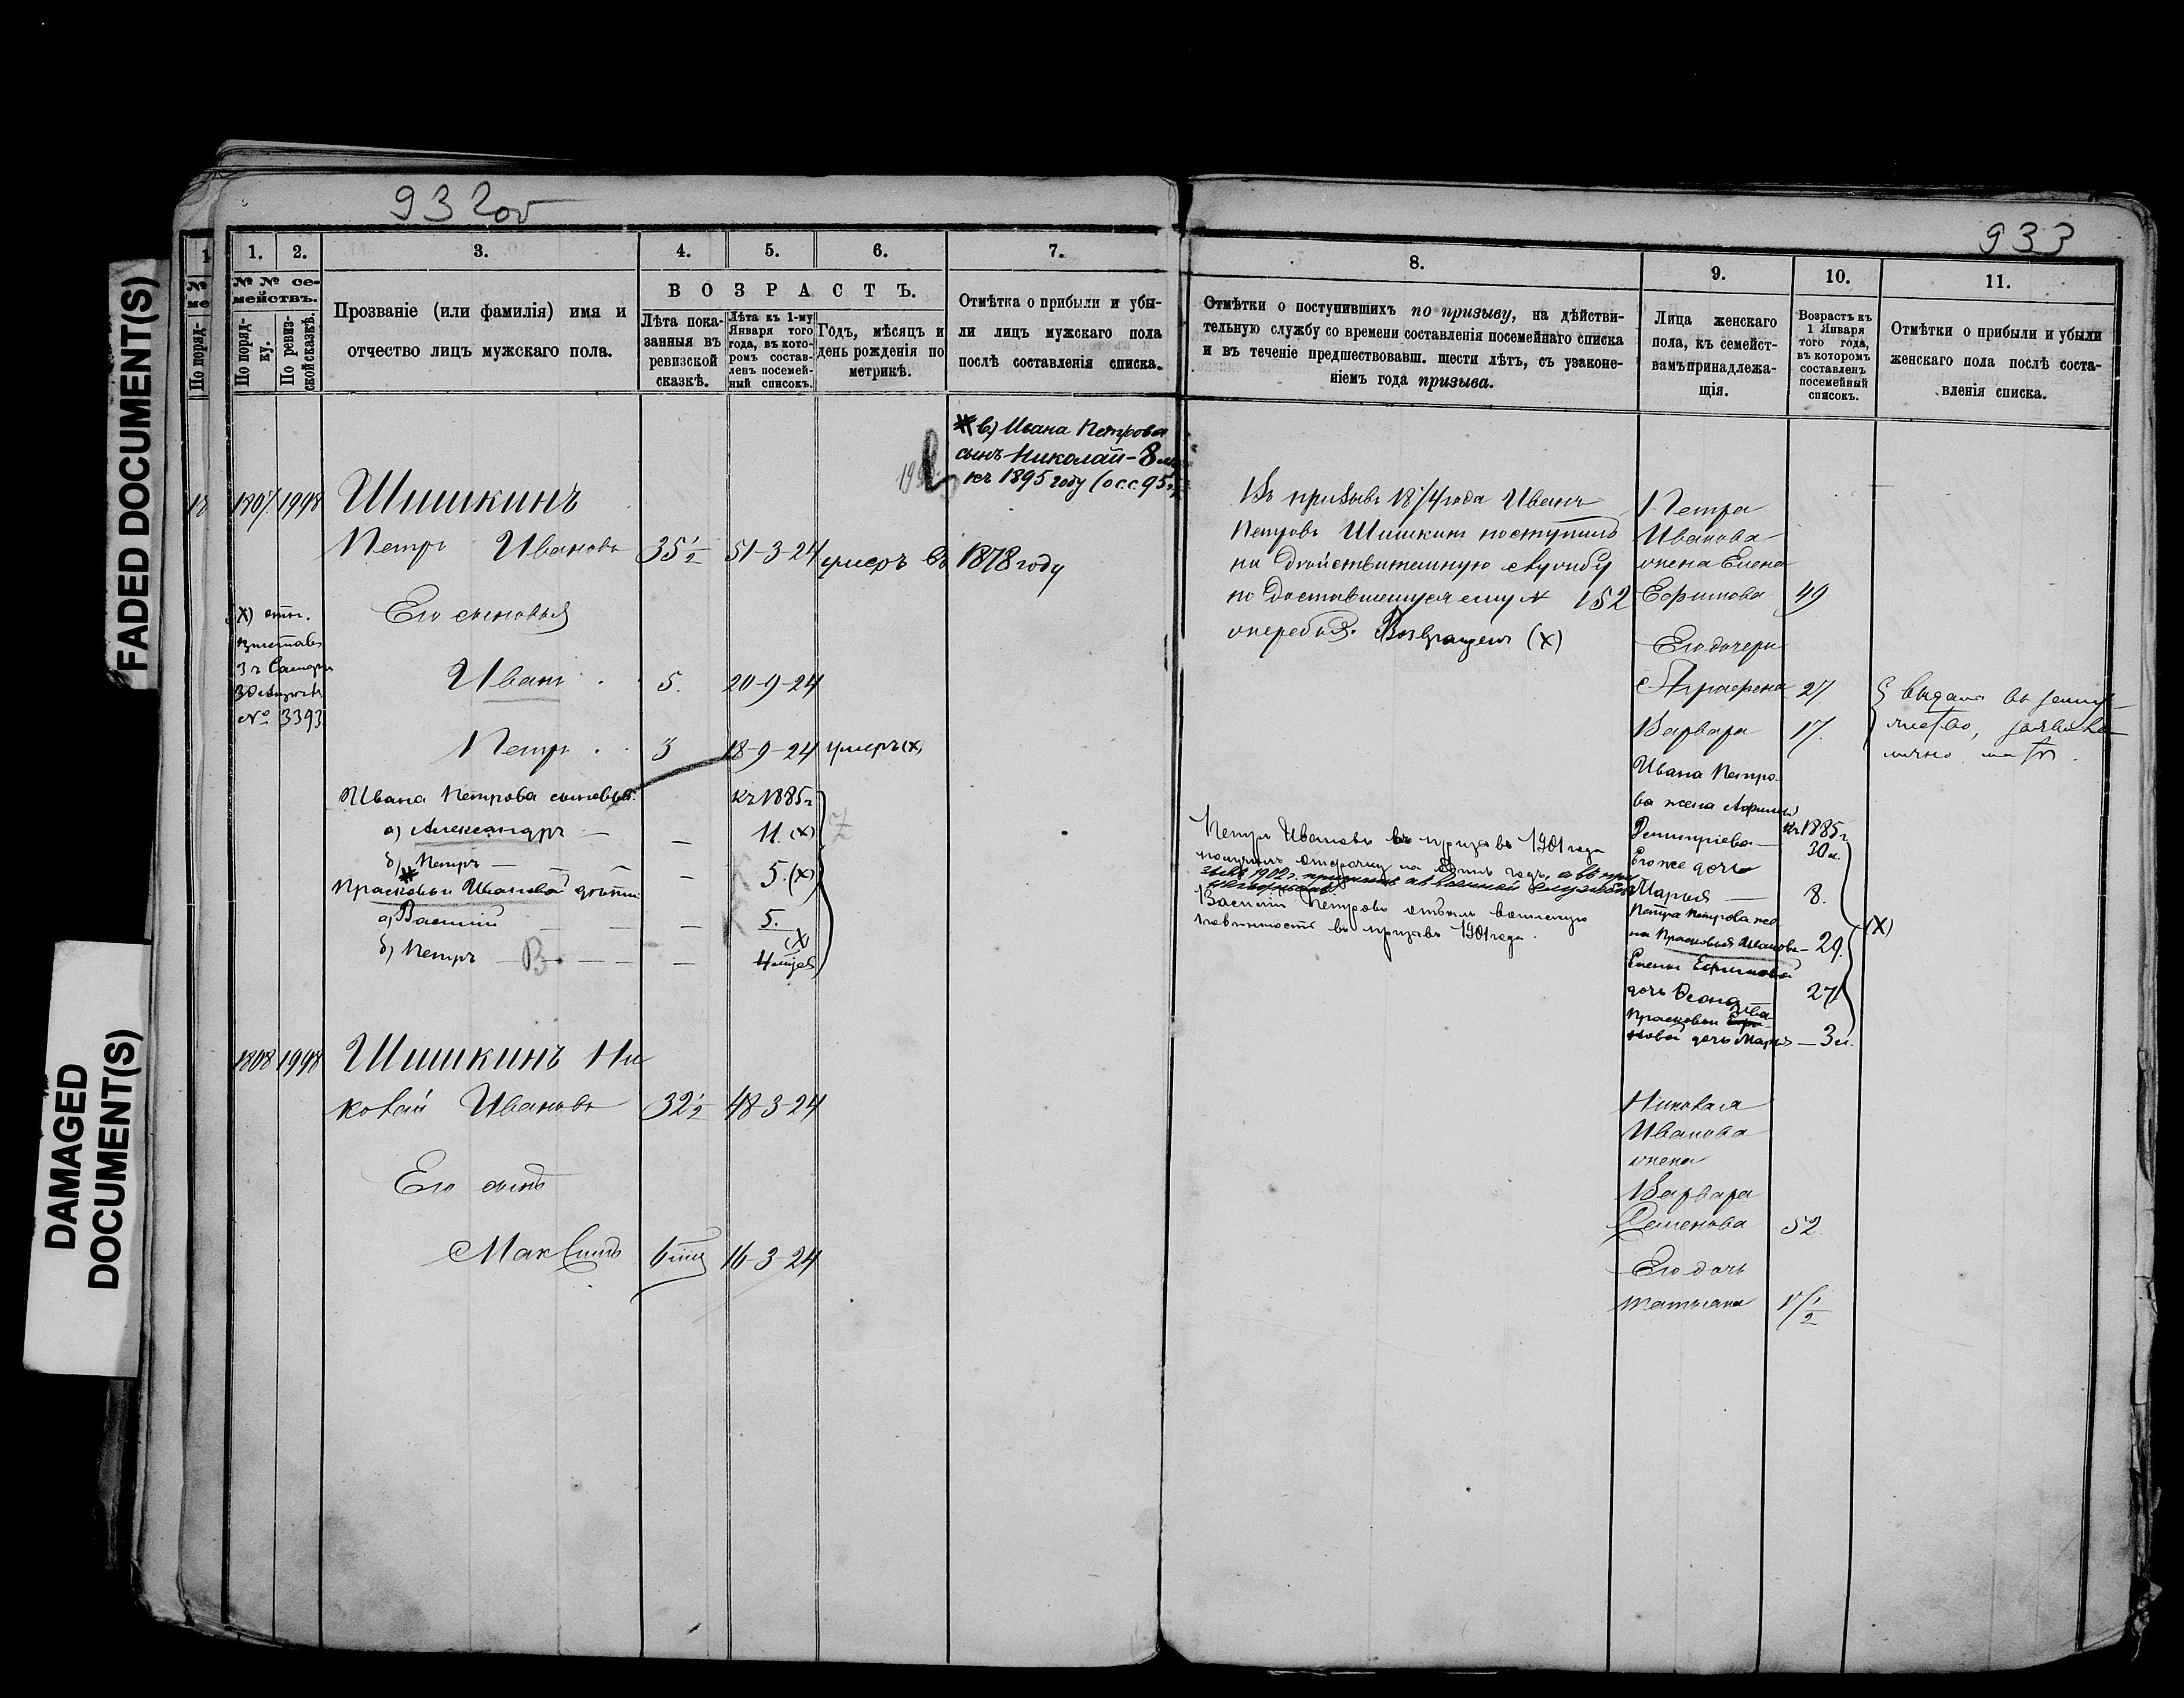 FADED DOCUMENT(S)
DAMAGED
DOCUMENT(S)
932об
1.
2.
3.
4.
5.
6.
7.
№ № се-
мействъ.
По поряд-
ку.
По ревиз-
ской сказкѣ.
Прозваніе (или фамилія) имя и
отчество лицъ мужскаго пола.
ВОЗРАСТЪ.
Лѣта пока-
занныя въ
ревизской
сказкѣ.
Лѣта къ 1-му
Января того
года, въ кото-
ромъ состав-
ленъ посемей-
ный списокъ.
Годъ, мѣсяцъ и
день рожденія по
метрикѣ.
Отмѣтка о прибыли и убы-
ли лицъ мужскаго пола
послѣ составленія списка.
в) Ивана Петрова
сынъ Николай - 8
къ 1895 году (о.с.с. 95 г.
1998 Шишкинъ
Петръ Ивановъ 35½ 51-3-24 умеръ въ 1878 году
Его сыновья
Иванъ 5. 20-9-24
Петръ 3 18-9-24 умеръ (х)
№ 3393
Ивана Петрова сыновья: къ 1885 г
а) Александръ — — 11. (х)
б) Петръ — — 5. (х)
Прасковьи Ивановой дѣти:
а) Василій — 5.
(х)
б) Петръ — — 4 мцѣв
1808 1998 Шишкинъ Ни
колай Ивановъ 32½ 48-3-24
Его сынъ
Максимъ 6 мцѣ 16-3-24
933
8.
9.
10.
11.
Отмѣтки о поступившихъ по призыву, на дѣйстви-
тельную службу со времени составленія посемейнаго списка
и въ теченіе предшествовавш. шести лѣтъ, съ узаконе-
ніемъ года призыва.
Лица женскаго
пола, къ семейст-
вамъ принадлежа-
щія.
Возрастъ къ
1 Января
того года,
въ которомъ
составленъ
посемейный
списокъ.
Отмѣтки о прибыли и убыли
женскаго пола послѣ соста-
вленія списка.
Въ призывъ 1874 года Иванъ
Петровъ Шишкинъ поступилъ
на дѣйствительную службу
по доставшемуся ему № 152
жеребья. Возвращенъ (х)
Петра
Иванова
жена Елена
Ефимова 49
Его дочери
Аграфена 27.
Варвара 17.
выдана въ замуж-
ство,
Ивана Петро-
ва жена
Дмитріева — къ 1885 г.
30 л.
Его же дочь
Марья — 8.
Петра Петрова же-
на Прасковья Иванова — 29. (х)
Елены Ефимовой
дочь 27
Прасковьи Ива-
новой дочь Марья — 3 л.
Петръ Ивановъ въ призывъ 1901 года
получилъ отсрочку на одинъ годъ, а въ при
зывъ 1902 г.
Василій Петровъ отбылъ воинскую
повинность въ призывъ 1901 года.
Николая
Иванова
жена
Варвара
Семенова 52.
Его дочь
Татьяна